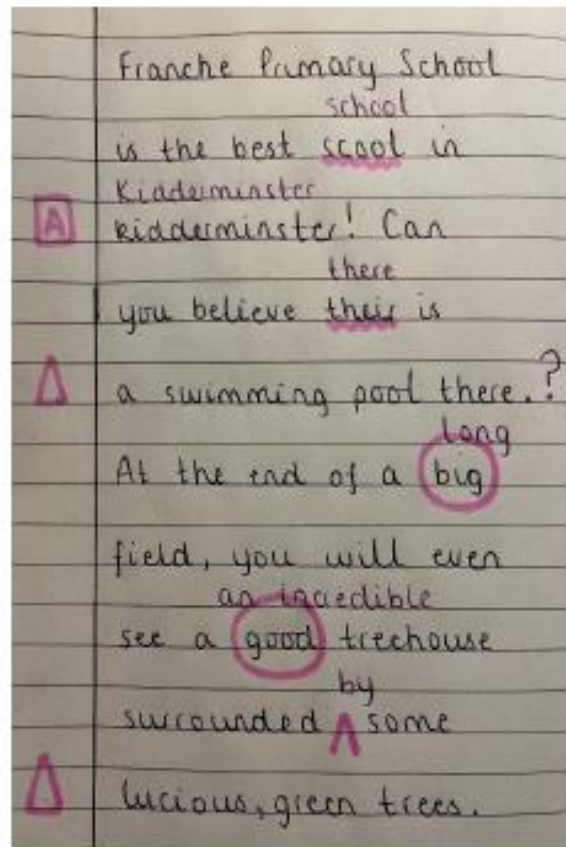 Franche Primary School
school
is the best scool in
Kidderminster
A kidderminster! Can
there
you believe their is
a swimming pool there.?
long
At the end of a big
field, you will even
an incredible
see a good treehouse
by
surrounded ^ some
lucious, green trees.